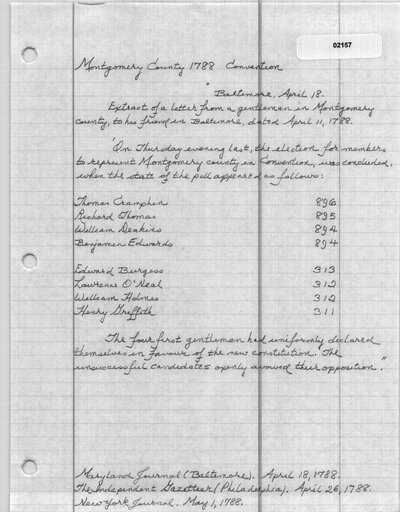 02157
Montgomery County 1788 Convention
"Baltimore, April 18.
Extract of a letter from a gentleman in Montgomery
county, to his friend in Baltimore, dated April 11, 1788.
'On Thursday evening last, the election for members
to represent Montgomery county in Convention, was concluded,
when the state of the poll appeared as follows:
Thomas Cramphin 896
Richard Thomas 895
William Deakins 894
Benjamin Edwards 894
Edward Burgess 313
Lawrence O'Neal 312
William Holmes 312
Henry Griffith 311
The four first gentleman had uniformly declared
themselves in favour of the new constitution. The
unsuccessful candidates openly avowed their opposition."
Maryland Journal (Baltimore). April 18, 1788.
The Independent Gazetteer (Philadelphia). April 26, 1788.
New York Journal. May 1, 1788.